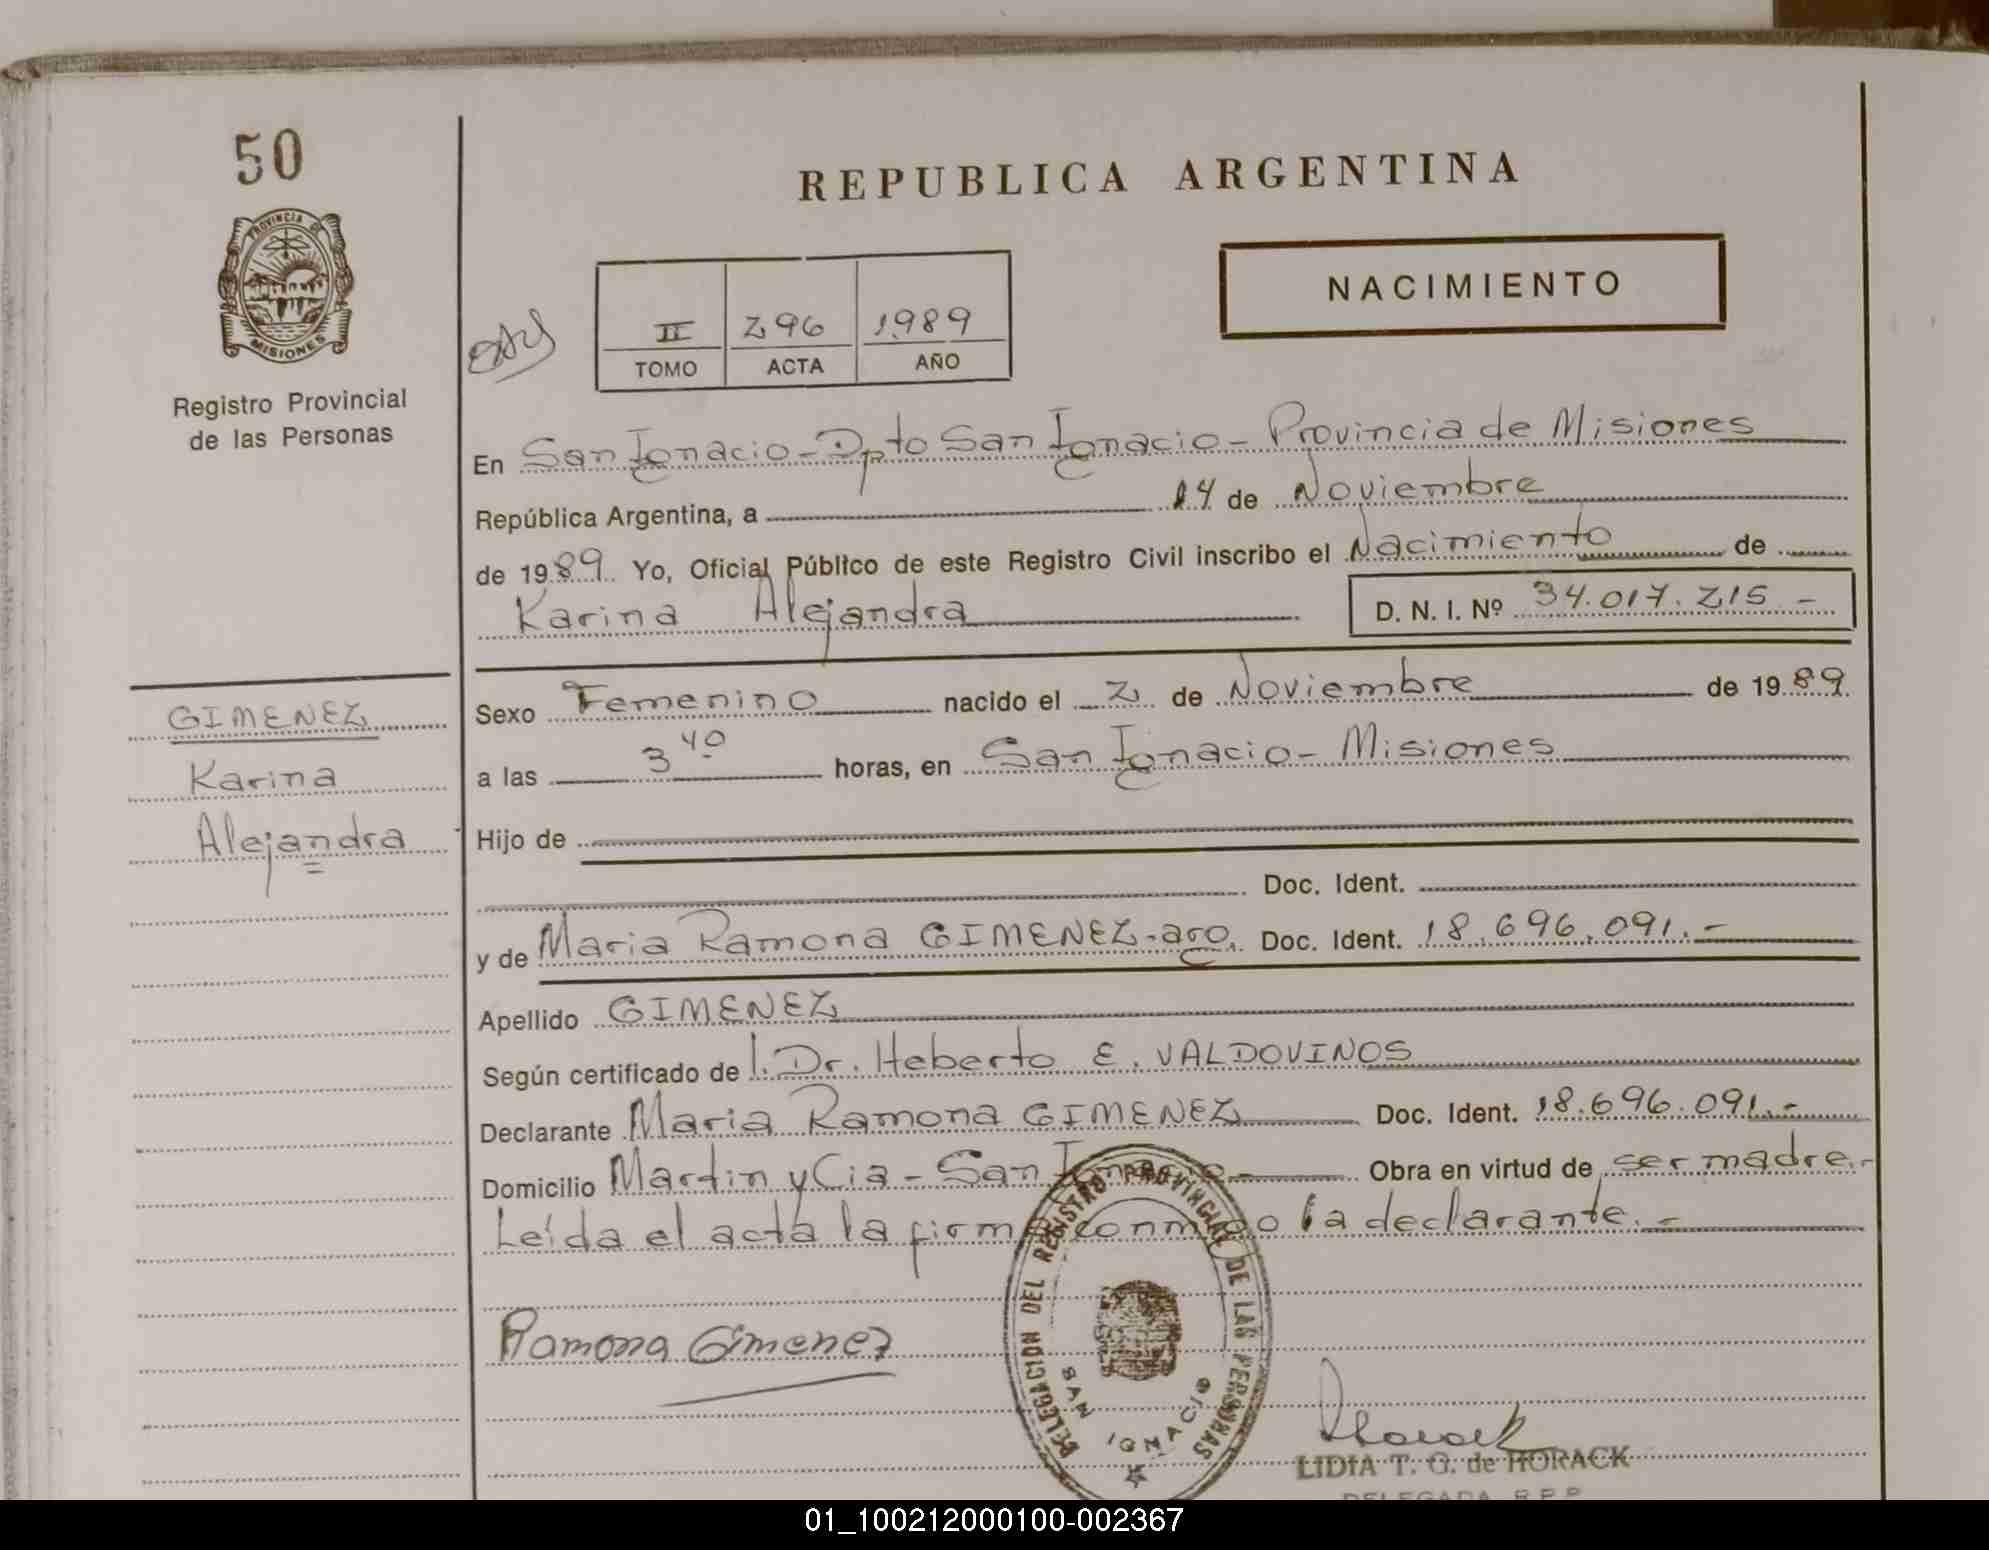 50
REPUBLICA ARGENTINA
PROVINCIA DE
MISIONES
Registro Provincial
de las Personas
NACIMIENTO
II 296 1989
TOMO ACTA AÑO
En San Ignacio - Dpto San Ignacio - Provincia de Misiones
República Argentina, a 14 de Noviembre
de 1989. Yo, Oficial Público de este Registro Civil inscribo el Nacimiento de
Karina Alejandra
D. N. I. Nº 34.017.215.-
GIMENEZ
Karina
Alejandra
Sexo Femenino nacido el 2 de Noviembre de 1989.
a las 3 40 horas, en San Ignacio - Misiones
Hijo de
Doc. Ident.
y de Maria Ramona GIMENEZ - arg. Doc. Ident. 18.696.091.-
Apellido GIMENEZ
Según certificado de l. Dr. Heberto E. VALDOVINOS
Declarante Maria Ramona GIMENEZ Doc. Ident. 18.696.091.-
Domicilio Martin y Cia - San Ignacio - Obra en virtud de ser madre.-
Leída el acta la firma conmigo la declarante.-
Ramona Gimenez
DELEGACION DEL REGISTRO PROVINCIAL DE LAS PERSONAS
SAN IGNACIO
LIDIA T. G. de HORACK
DELEGADA R.P.P.
01_100212000100-002367